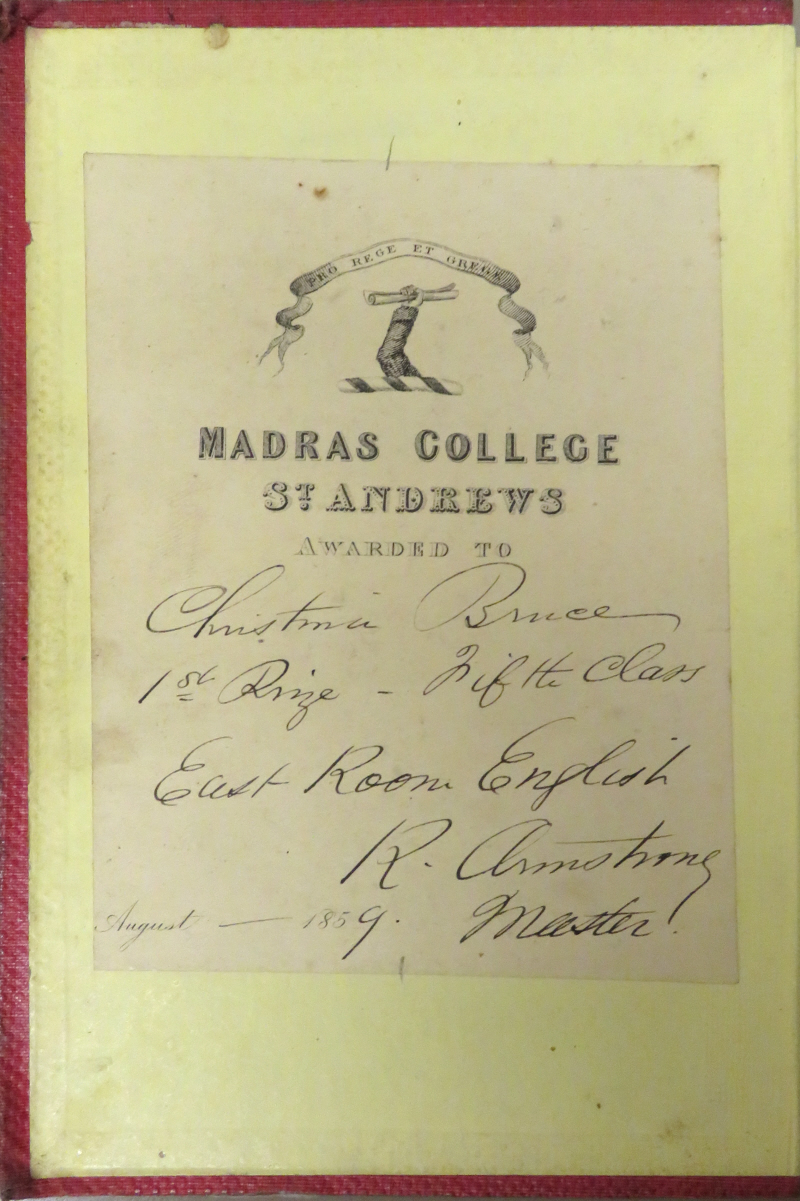 PRO REGE ET GREGE
MADRAS COLLEGE
ST ANDREWS
AWARDED TO
Christina Bruce
1st Prize - Fifth Class
East Room English
R. Armstrong
August — 1859. Master.